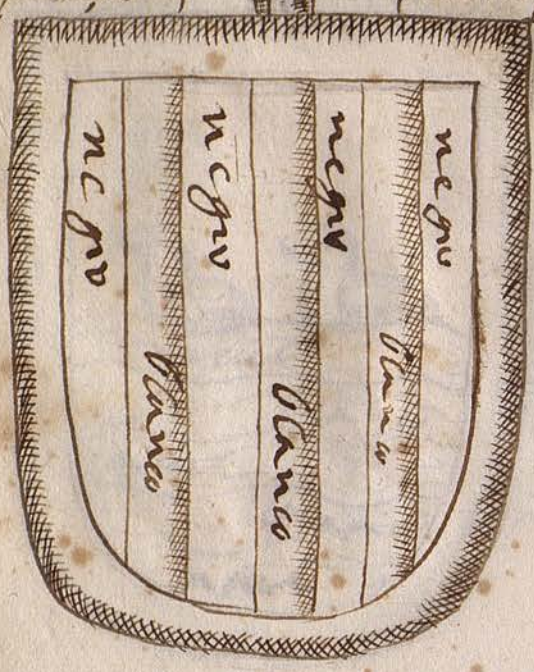 negro
blanco
negro
blanco
negro
blanco
negro